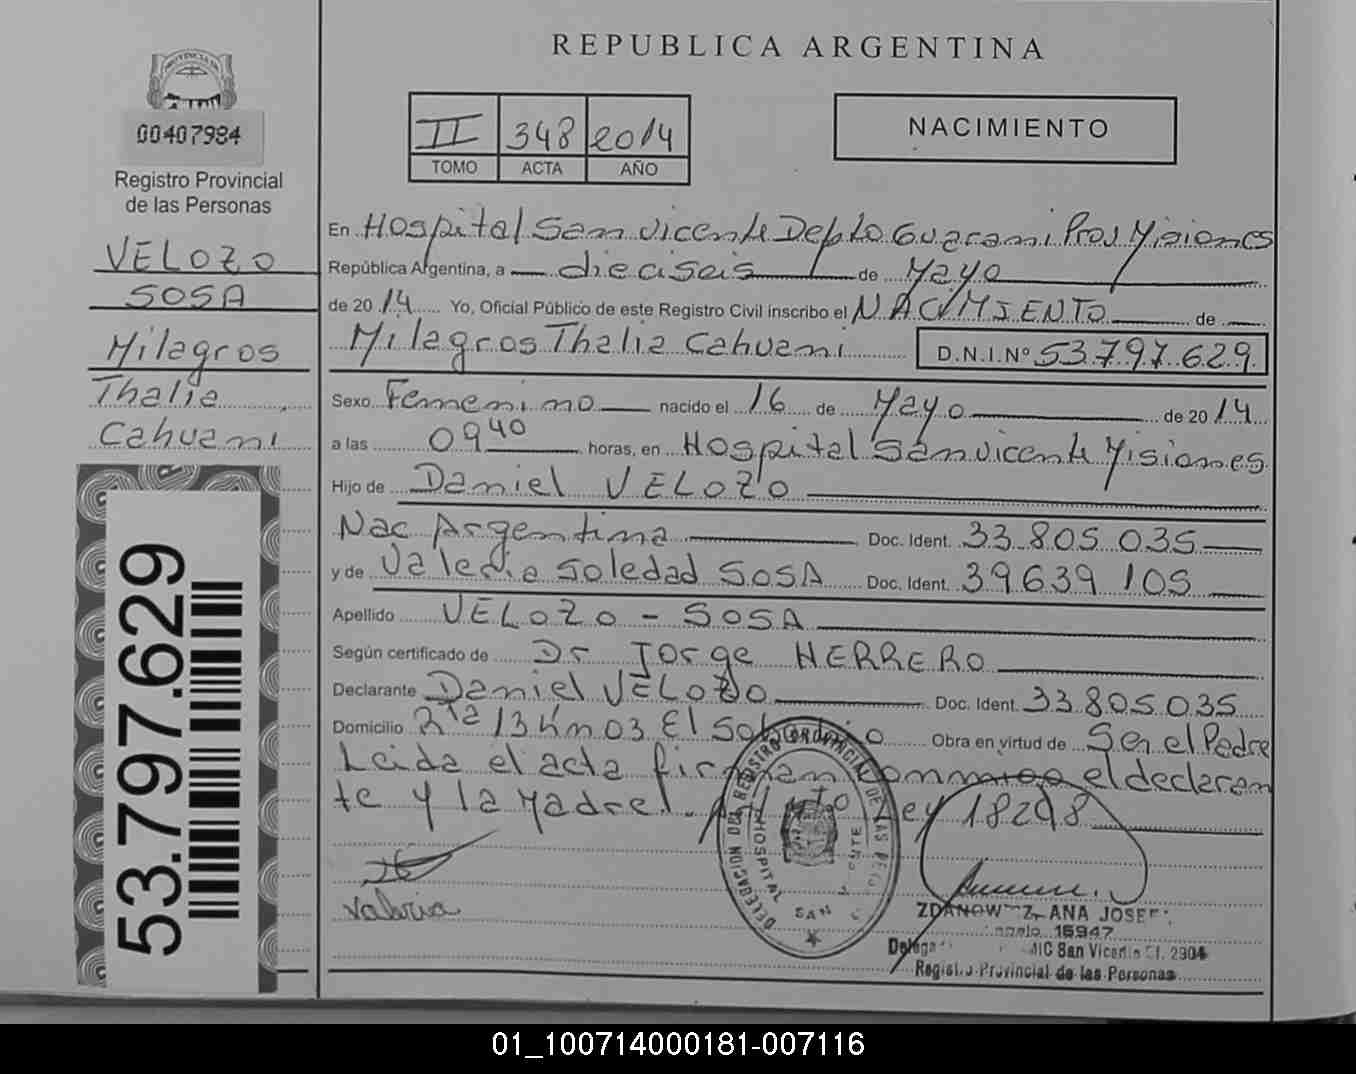 REPUBLICA ARGENTINA
00407984
Registro Provincial
de las Personas
VELOZO
SOSA
Milagros
Thalia
Cahuami
53.797.629
II 348 2014
TOMO ACTA AÑO
NACIMIENTO
En Hospital San Vicente Depto Guarani Prov Misiones
República Argentina, a dieciseis de Mayo
de 2014 Yo, Oficial Público de este Registro Civil inscribo el NACIMIENTO de
Milagros Thalia Cahuami D.N.I. Nº 53.797.629
Sexo Femenino nacido el 16 de Mayo de 2014
a las 09 40 horas, en Hospital San Vicente Misiones
Hijo de Daniel VELOZO
Nac Argentina Doc. Ident. 33.805.035
y de Valeria Soledad SOSA Doc. Ident. 39639105
Apellido VELOZO - SOSA
Según certificado de Dr Jorge HERRERO
Declarante Daniel VELOZO Doc. Ident. 33.805.035
Domicilio Rta 13 Km 03 El Soberbio Obra en virtud de Ser el Padre
Leida el acta firman conmigo el declaran
te y la Madre. Ley 18248
Valeria
DELEGACION DEL REGISTRO PROVINCIAL DE LAS
HOSPITAL SAN VICENTE
ZDANOW ANA JOSE
15947
San Vicente 2904
Registro Provincial de las Personas
01_100714000181-007116